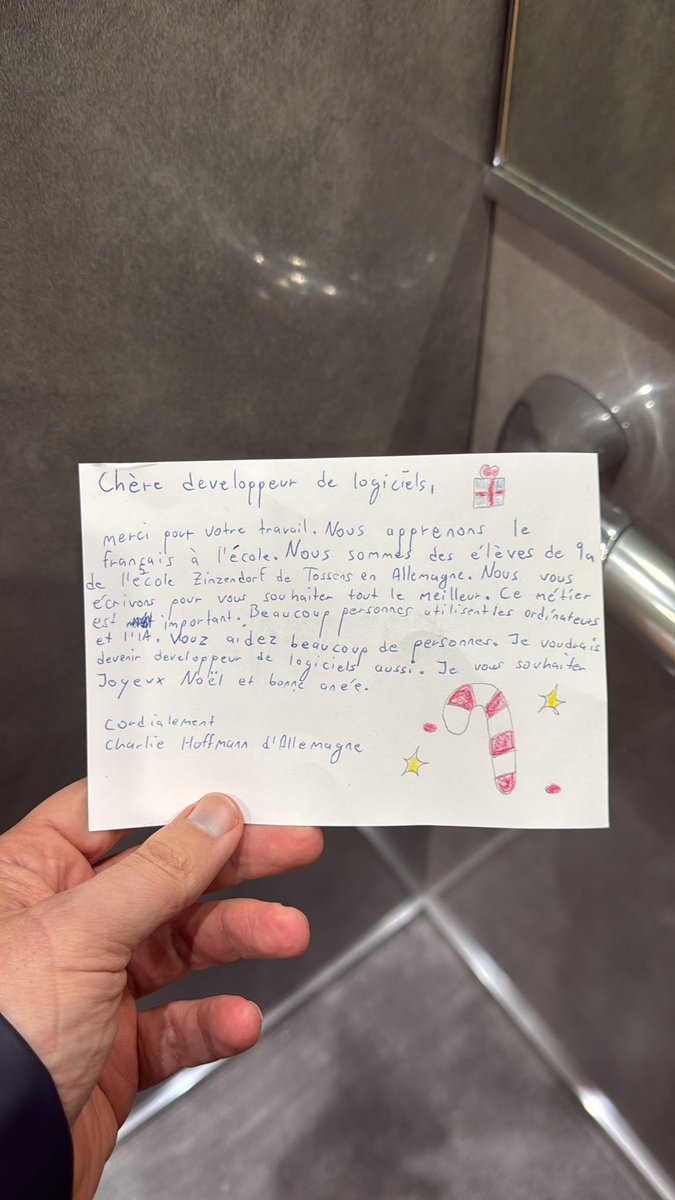 Chère developpeur de logiciels,
merci pour votre travail. Nous apprenons le
français à l'école. Nous sommes des élèves de 9a
de l'école Zinzendorf de Tossens en Allemagne. Nous vous
écrivons pour vous souhaiter tout le meilleur. Ce métier
est important. Beaucoup personnes utilisent les ordinateurs
et l'IA. Vouz aidez beaucoup de personnes. Je voudrais
devenir developpeur de logiciels aussi. Je vous souhaiter
Joyeux Noël et bonne anée.
Cordialement
Charlie Hoffmann d'Allemagne